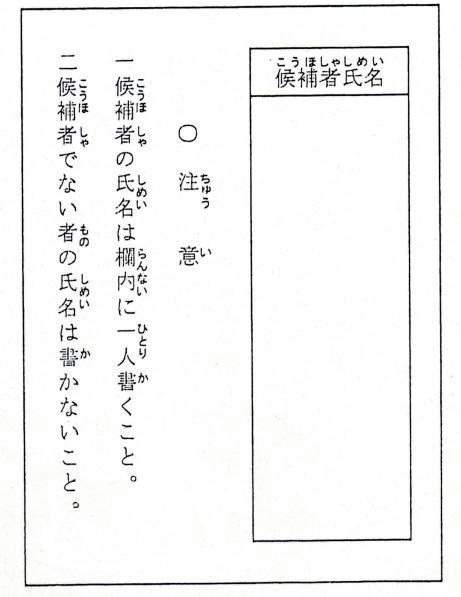 候補者氏名
こうほしゃしめい
○ 注意
ちゅう い
一 候補者の氏名は欄内に一人書くこと。
こうほ しゃ しめい らんない ひとり か
二 候補者でない者の氏名は書かないこと。
こうほ しゃ もの しめい か